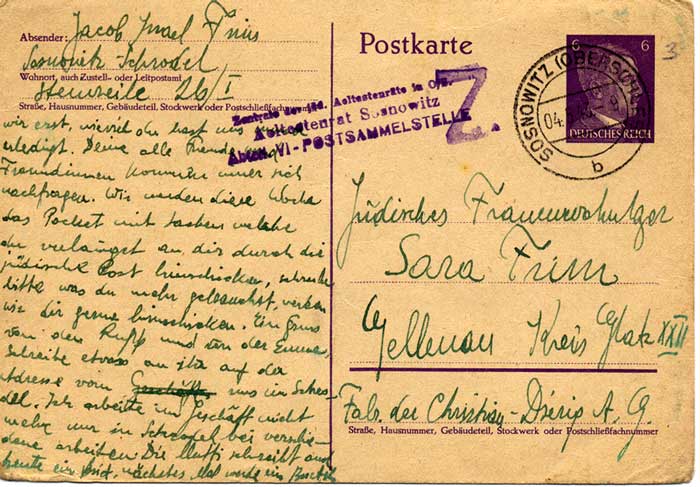 Absender: Jacob Israel
Sosnowitz-Schrodel
Wohnort, auch Zustell- oder Leitpostamt
26/I
Straße, Hausnummer, Gebäudeteil, Stockwerk oder Postschließfachnummer
wir erst, wieviel du hast uns
erledigt. Deine alle
Freundinnen kommen immer sich
nachfragen. Wir werden diese Woche
das Packet mit Sachen welche
du verlangst an dir durch die
jüdische Post hinschicken, schreibe
bitte was du mehr gebrauchst, werden
wir dir gerne hinschicken. Ein Gruss
von den und von der Emma,
schreibe etwas an ihr auf der
Adresse vom Geschäft uns in Schro-
del. Ich arbeite im Geschäft nicht
mehr nur in Schrodel bei verschie-
dene arbeiten Die Mutti schreibt auch
heute ein nächstes Mal werde ein
Postkarte
6 6
DEUTSCHES REICH
SOSNOWITZ (OBERSCHLES)
04.
b
3
Zentrale der jüd. Aeltestenräte in O/S.
Aeltestenrat Sosnowitz
Abteil. VI - POSTSAMMELSTELLE
Z.
Jüdisches Frauenwohnlager
Sara
Gellenau Kreis Glatz XXII
Fabr. der Christian-Dierig A. G.
Straße, Hausnummer, Gebäudeteil, Stockwerk oder Postschließfachnummer